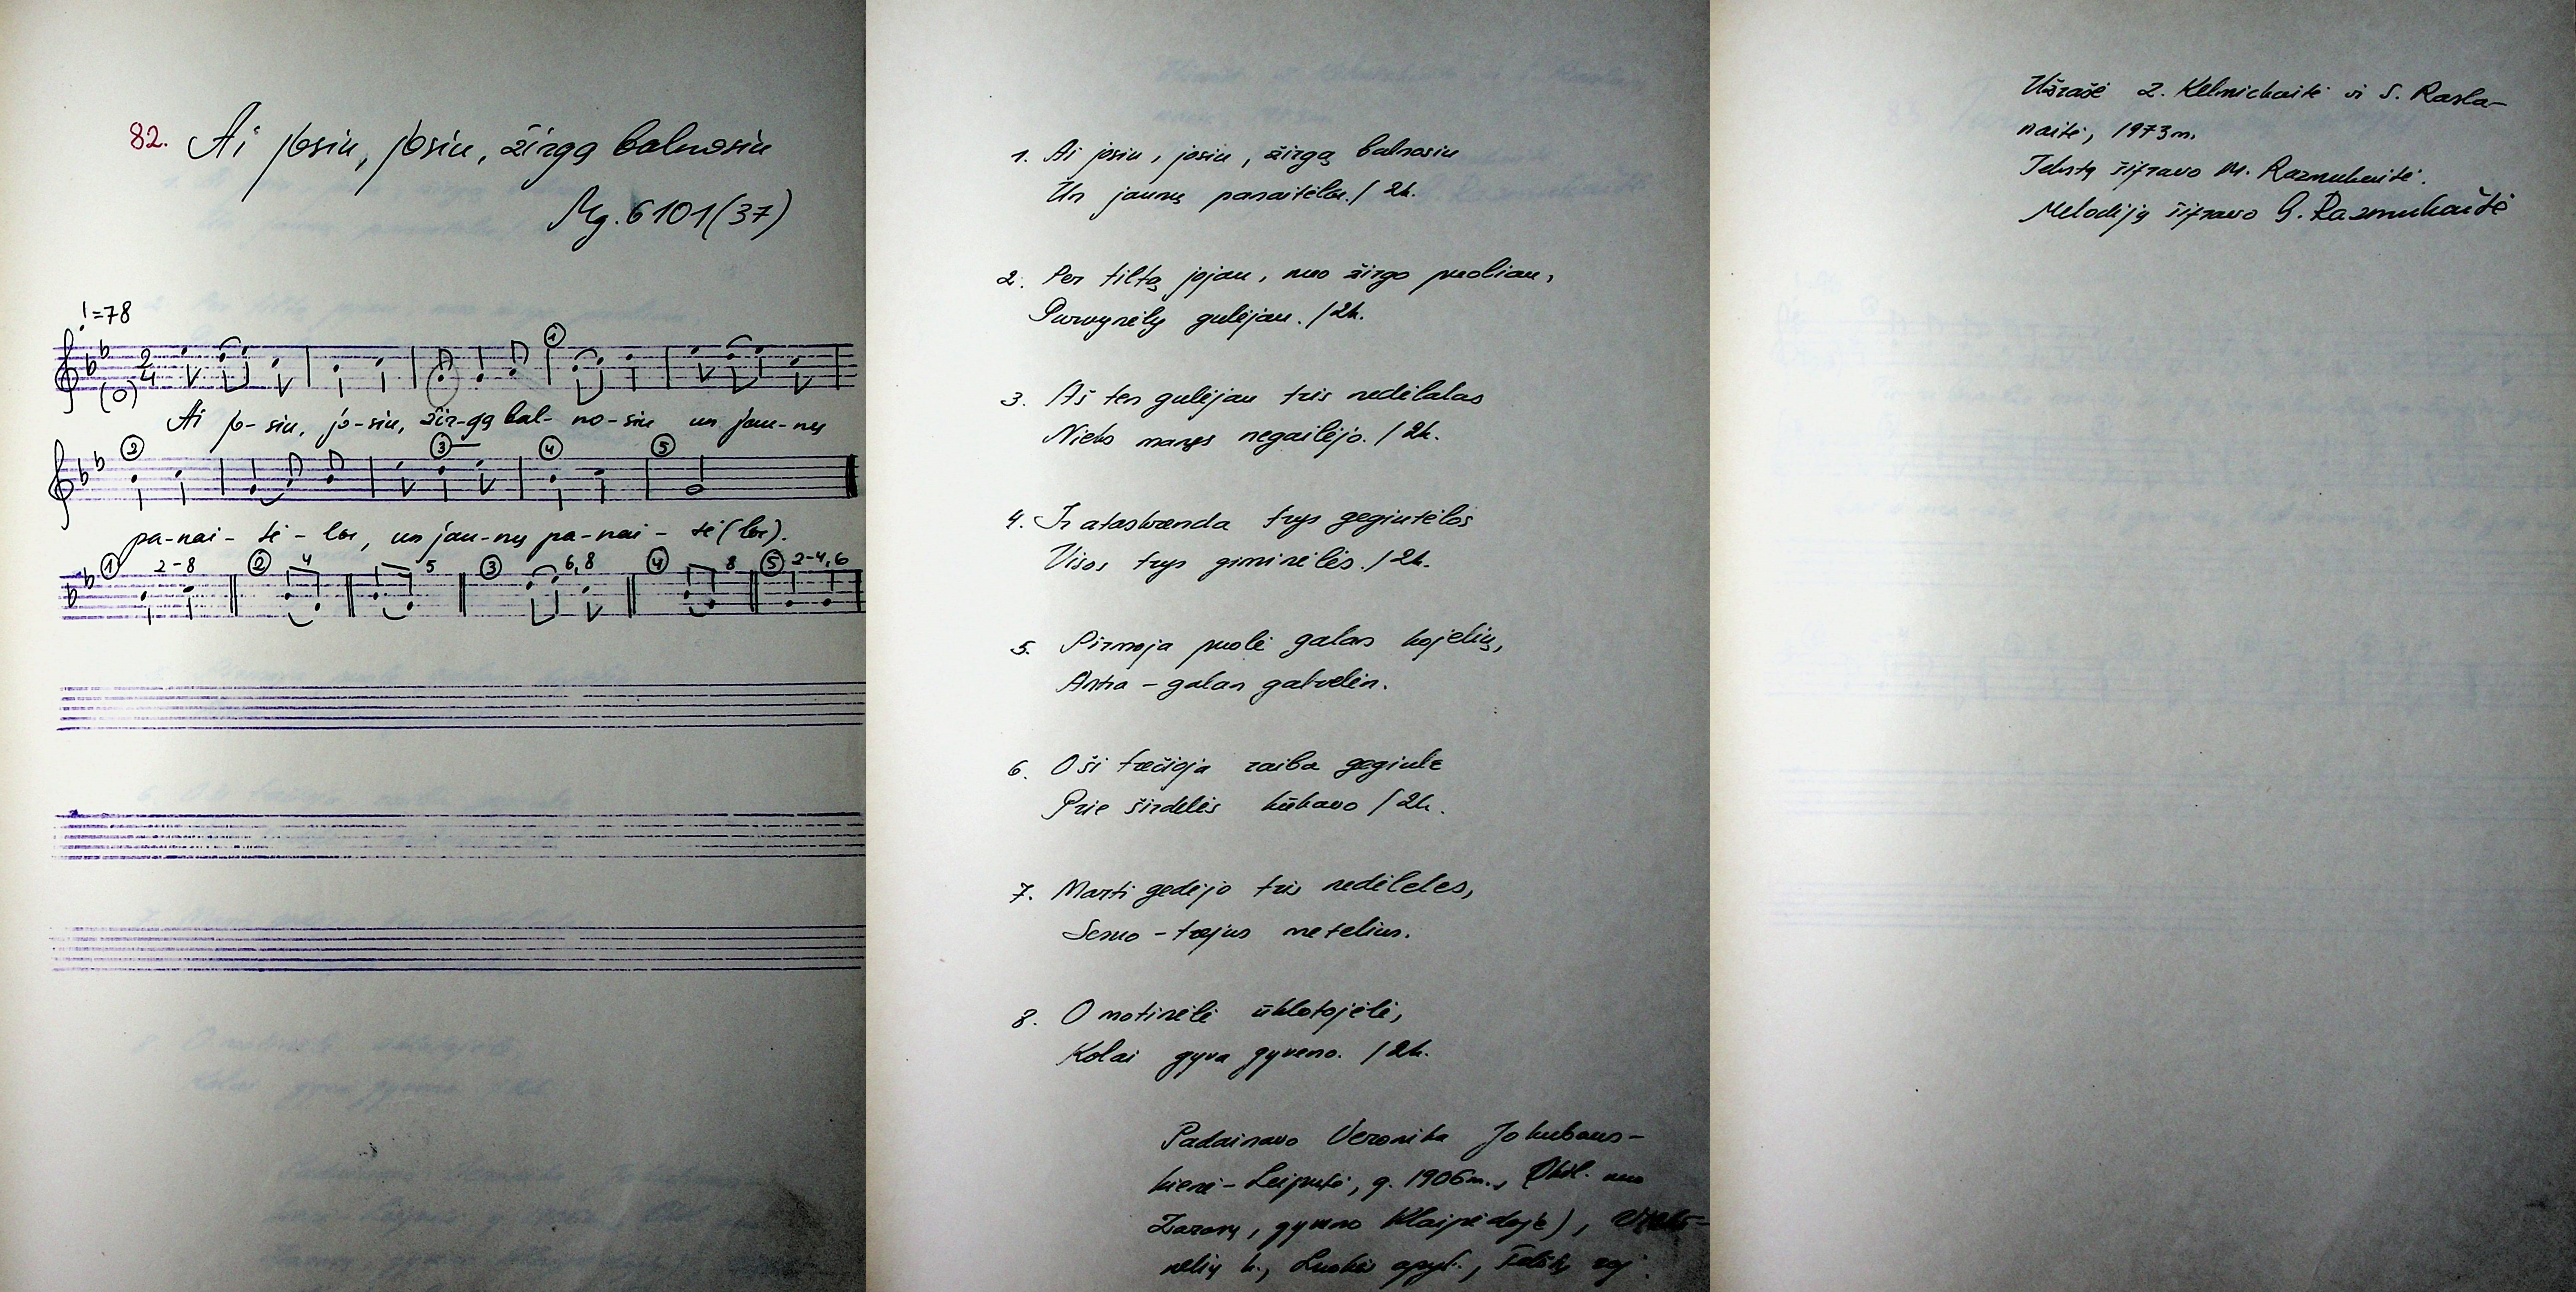 82. Ai josiu, josiu, žirgą balnosiu
Mg. 6101(37)
♩=78
Ai jo-siu, jo-siu, žir-gą bal-no-siu un jau-nų
pa-nai-tė-lių, un jau-nų pa-nai-tė(lių).
① 2-8 ② 4 5 ③ 6,8 ④ 8 ⑤ 2-4,6
1. Ai josiu, josiu, žirgą balnosiu
Un jaunų panaitėlių. / 2k.
2. Per tiltą jojau, nuo žirgo puoliau,
Purvynėly gulėjau. / 2k.
3. Aš ten gulėjau tris nedėlalas
Nieks manęs negailėjo. / 2k.
4. Ir ataskrenda trys gegiutėlės
Visos trys giminėlės. / 2k.
5. Pirmoja puolė galan kojelių,
Antra - galan galvelės.
6. O ši trečioja raiba gegiulė
Prie širdelės kūkavo / 2k.
7. Marti gedėjo tris nedėleles,
Sesuo - trejus metelius.
8. O motinėlė ūklotojėlė,
Kolai gyva gyveno. / 2k.
Padainavo Veronika Jokubaus-
kienė-Leiputė, g. 1906m.,
Zarasų, gyveno Klaipėdoje),
nelių k., Luokės apyl., Telšių raj.
Užrašė Z. Kelmickaitė ir S. Rasla-
naitė, 1973m.
Tekstą šifravo M. Razmukaitė.
Melodiją šifravo G. Razmukaitė